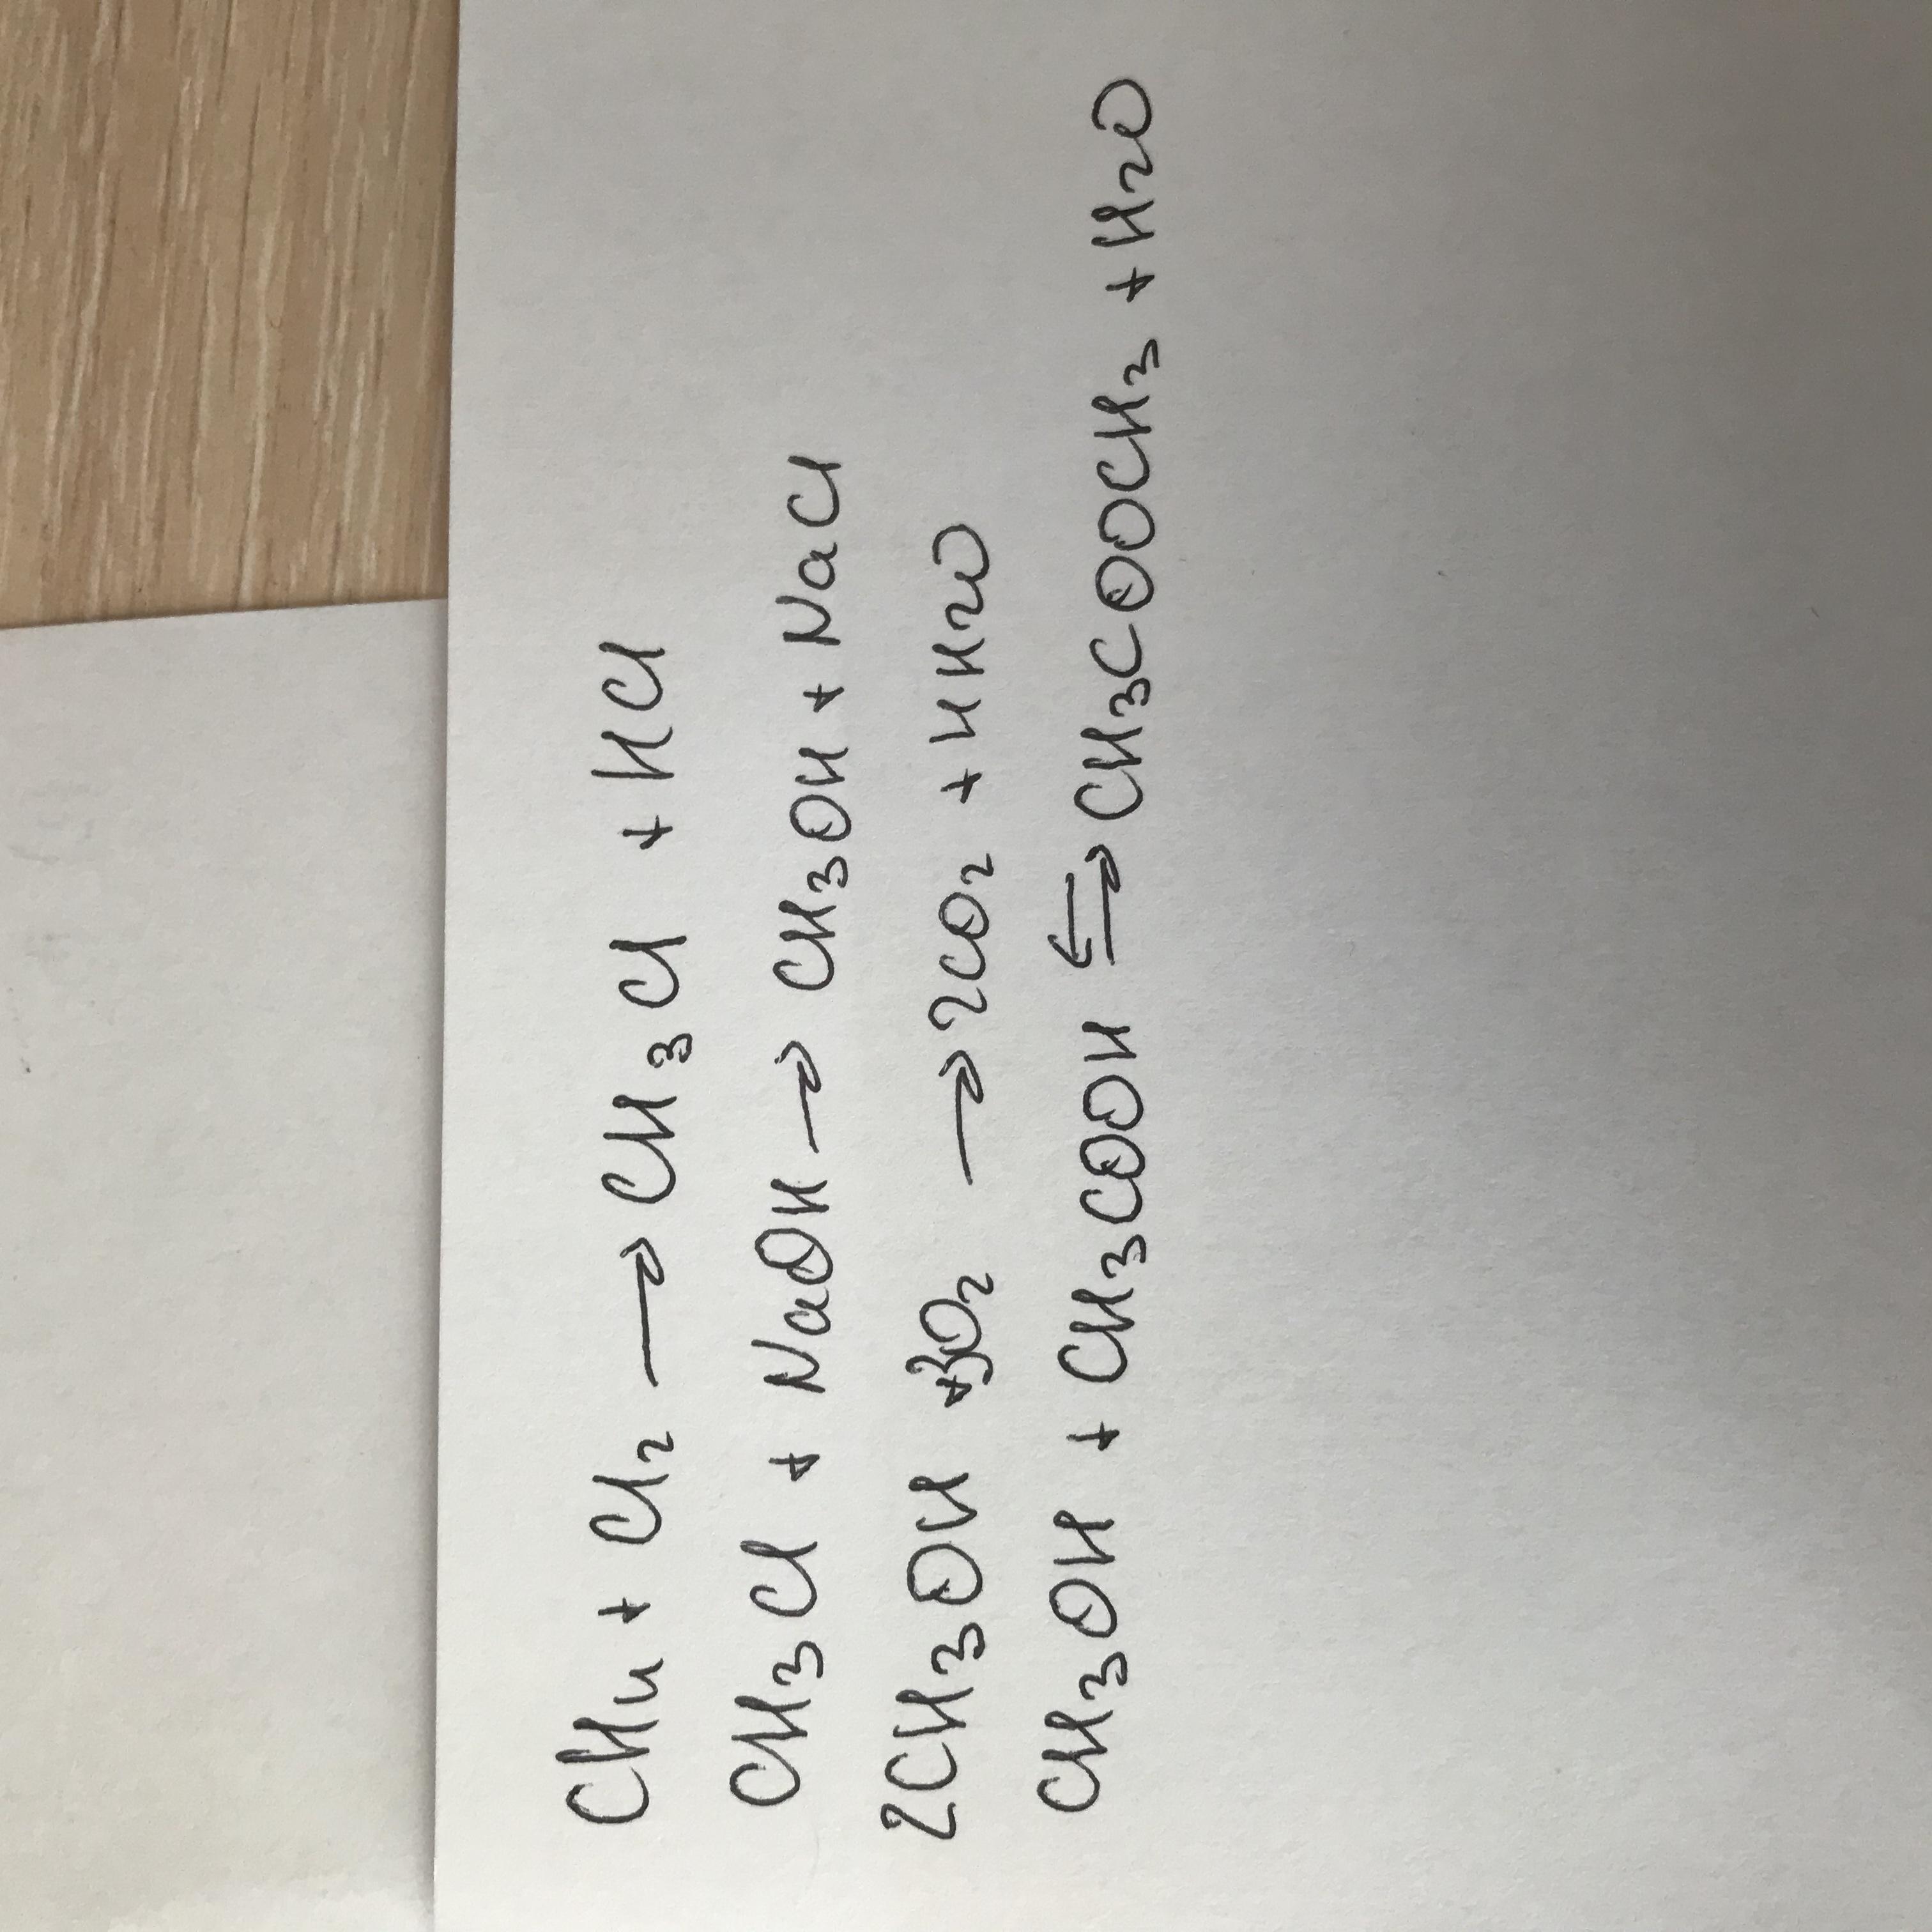 CH4 + Cl2 → CH3Cl + HCl
CH3Cl + NaOH → CH3OH + NaCl
2CH3OH + 3O2 → 2CO2 + 4H2O
CH3OH + CH3COOH ⇄ CH3COOCH3 + H2O